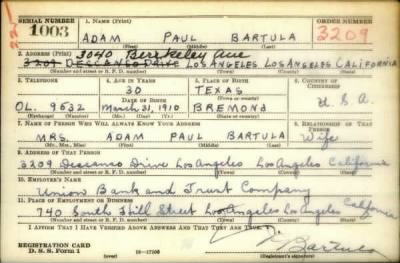 SERIAL NUMBER 1. NAME (Print) ORDER NUMBER
1003 ADAM PAUL BARTULA 3209
(First) (Middle) (Last)
2. ADDRESS (Print) 3040 Berkeley Ave
3209 DESCANSO DRIVE LOS ANGELES LOS ANGELES CALIFORNIA
(Number and street or R. F. D. number) (Town) (County) (State)
3. TELEPHONE 4. AGE IN YEARS 5. PLACE OF BIRTH 6. COUNTRY OF CITIZENSHIP
30 TEXAS
DATE OF BIRTH (Town or county)
OL. 9632 March 31, 1910 BREMOND U.S.A.
(Exchange) (Number) (Mo.) (Day) (Yr.) (State or country)
7. NAME OF PERSON WHO WILL ALWAYS KNOW YOUR ADDRESS 8. RELATIONSHIP OF THAT PERSON
MRS. ADAM PAUL BARTULA Wife
(Mr., Mrs., Miss) (First) (Middle) (Last)
9. ADDRESS OF THAT PERSON
3209 Descanso Drive Los Angeles Los Angeles California
(Number and street or R. F. D. number) (Town) (County) (State)
10. EMPLOYER'S NAME
Union Bank and Trust Company
11. PLACE OF EMPLOYMENT OR BUSINESS
740 South Hill Street Los Angeles Los Angeles California
(Number and street or R. F. D. number) (Town) (County) (State)
I AFFIRM THAT I HAVE VERIFIED ABOVE ANSWERS AND THAT THEY ARE TRUE.
REGISTRATION CARD
D. S. S. Form 1 (over) 16—17105 Bartula
(Registrant's signature)